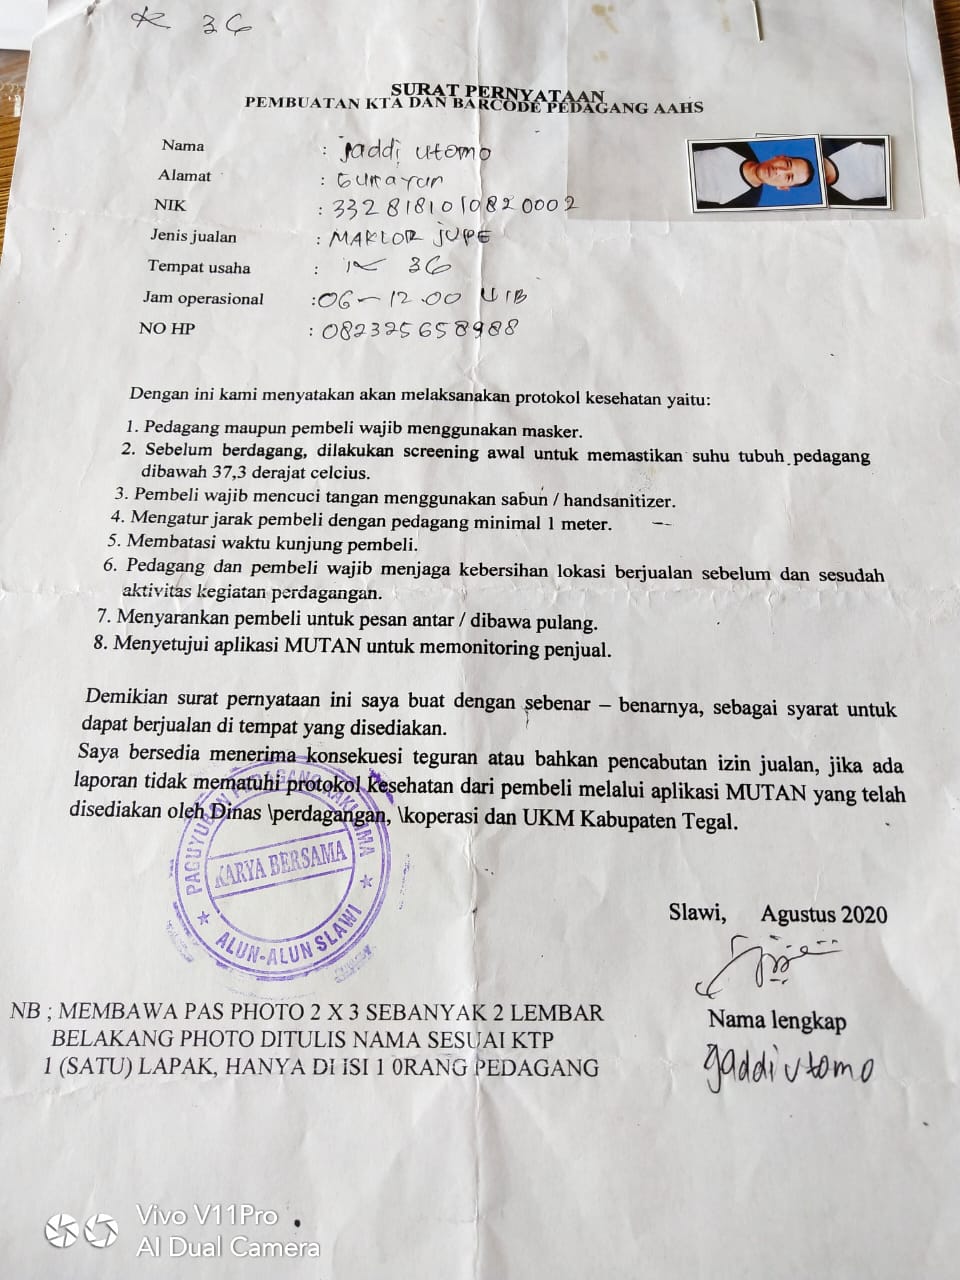 K 36
SURAT PERNYATAAN
PEMBUATAN KTA DAN BARCODE PEDAGANG AAHS
Nama : jaddi utomo
Alamat :
NIK : 3328181010820002
Jenis jualan : MAKLOR JUPE
Tempat usaha : K 36
Jam operasional : 06 - 12.00 WIB
NO HP : 082325658988
Dengan ini kami menyatakan akan melaksanakan protokol kesehatan yaitu:
1. Pedagang maupun pembeli wajib menggunakan masker.
2. Sebelum berdagang, dilakukan screening awal untuk memastikan suhu tubuh pedagang
dibawah 37,3 derajat celcius.
3. Pembeli wajib mencuci tangan menggunakan sabun / handsanitizer.
4. Mengatur jarak pembeli dengan pedagang minimal 1 meter.
5. Membatasi waktu kunjung pembeli.
6. Pedagang dan pembeli wajib menjaga kebersihan lokasi berjualan sebelum dan sesudah
aktivitas kegiatan perdagangan.
7. Menyarankan pembeli untuk pesan antar / dibawa pulang.
8. Menyetujui aplikasi MUTAN untuk memonitoring penjual.
Demikian surat pernyataan ini saya buat dengan sebenar – benarnya, sebagai syarat untuk
dapat berjualan di tempat yang disediakan.
Saya bersedia menerima konsekuesi teguran atau bahkan pencabutan izin jualan, jika ada
laporan tidak mematuhi protokol kesehatan dari pembeli melalui aplikasi MUTAN yang telah
disediakan oleh Dinas \perdagangan, \koperasi dan UKM Kabupaten Tegal.
PAGUYUBAN PEDAGANG
KARYA BERSAMA
ALUN-ALUN SLAWI
Slawi, Agustus 2020
Nama lengkap
jaddi utomo
NB ; MEMBAWA PAS PHOTO 2 X 3 SEBANYAK 2 LEMBAR
BELAKANG PHOTO DITULIS NAMA SESUAI KTP
1 (SATU) LAPAK, HANYA DI ISI 1 0RANG PEDAGANG
Vivo V11Pro
AI Dual Camera